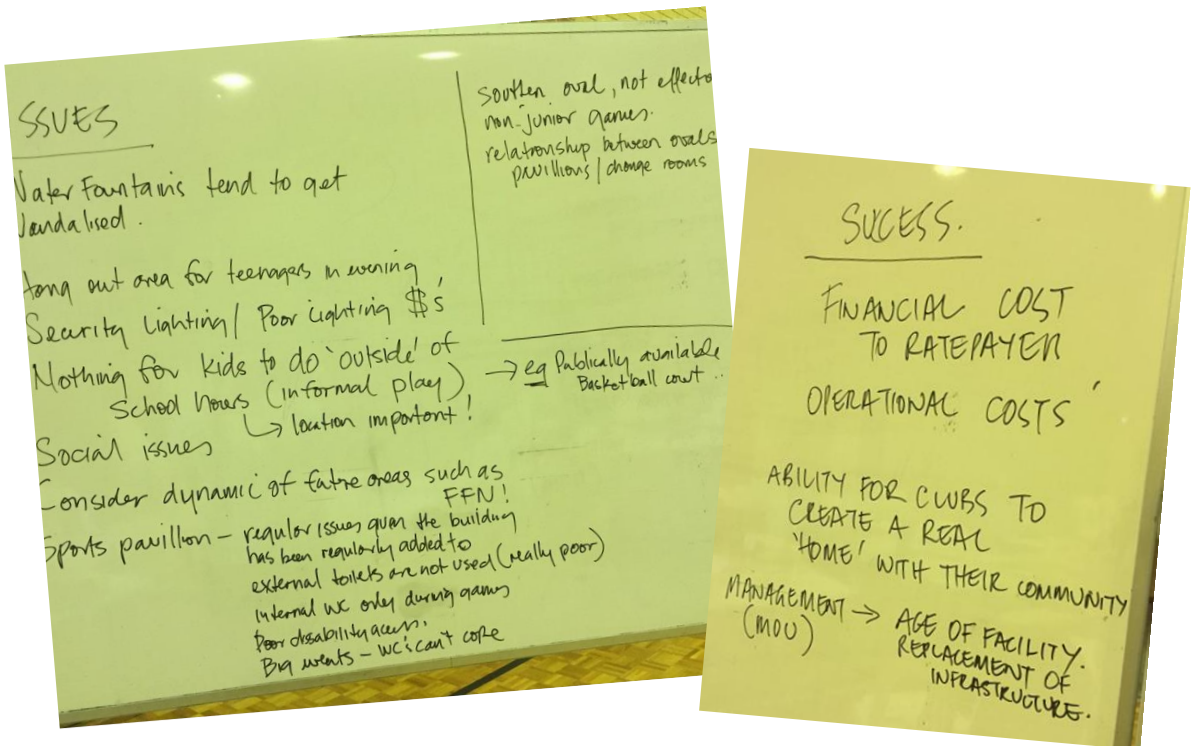 ISSUES
Water Fountains tend to get
Vandalised.
Hang out area for teenagers in evening
Security Lighting / Poor Lighting $'s
Nothing for kids to do 'outside' of
School hours (informal play)
↳ location important!
Social issues
Consider dynamic of future areas such as
FFN!
Sports pavillion – regular issues given the building
has been regularly added to
external toilets are not used (really poor)
Internal WC only during games
Poor disability access.
Big events – WC's can't cope
Southern oval, not effecte
non-junior games.
relationship between ovals
pavillions / change rooms
→ eg Publically available
Basketball court ..
SUCESS.
FINANCIAL COST
TO RATEPAYER
OPERATIONAL COSTS'
ABILITY FOR CLUBS TO
CREATE A REAL
'HOME' WITH THEIR COMMUNITY
MANAGEMENT → AGE OF FACILITY.
(MOU)
REPLACEMENT OF
INFRASTRUCTURE.